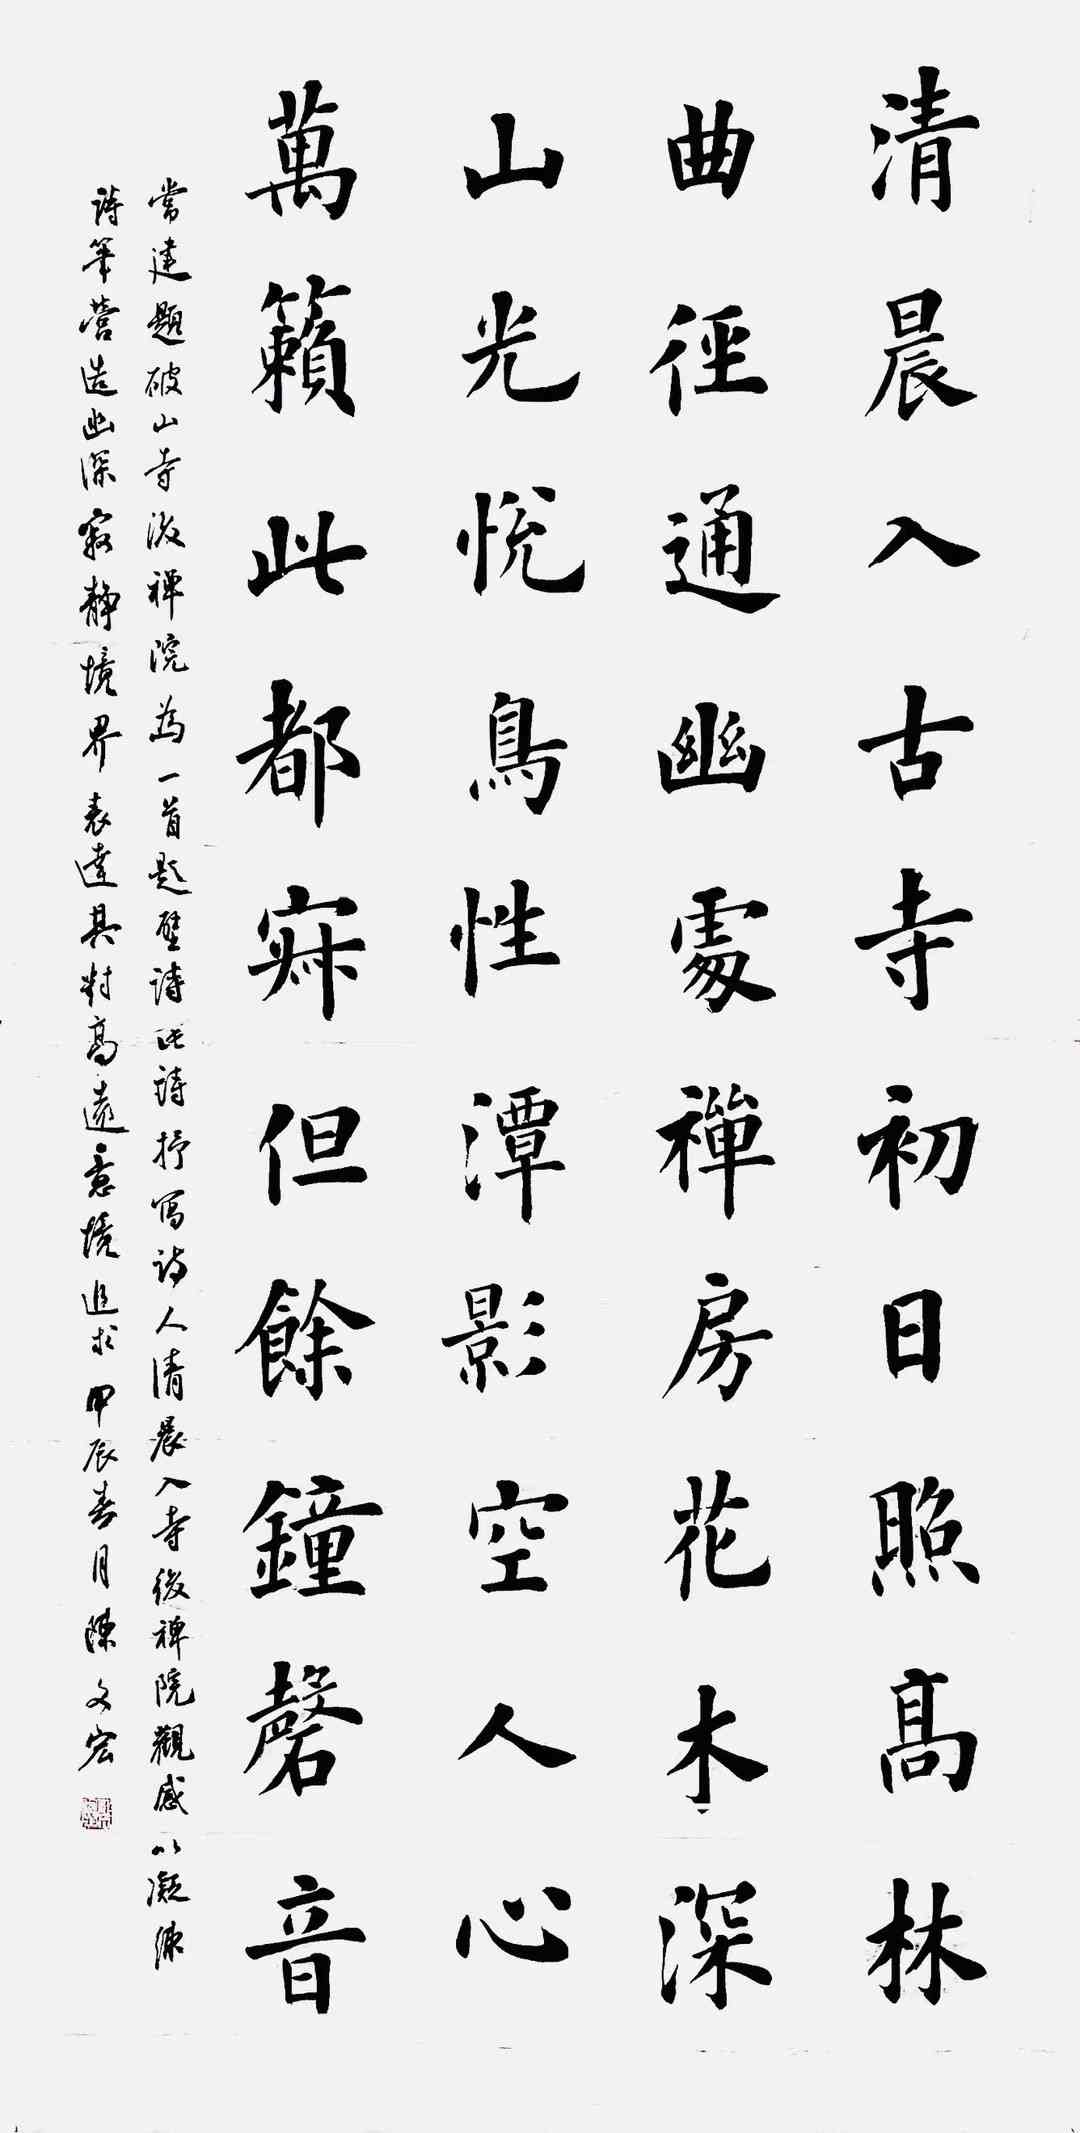 清晨入古寺初日照高林
曲徑通幽處禪房花木深
山光悅鳥性潭影空人心
萬籟此都寂但餘鐘磬音
常建題破山寺後禪院為一首題壁詩此詩抒写詩人清晨入寺後禅院觀感以凝練
詩筆营造幽深寂静境界表達其对高遠意境追求甲辰春月陳文宏